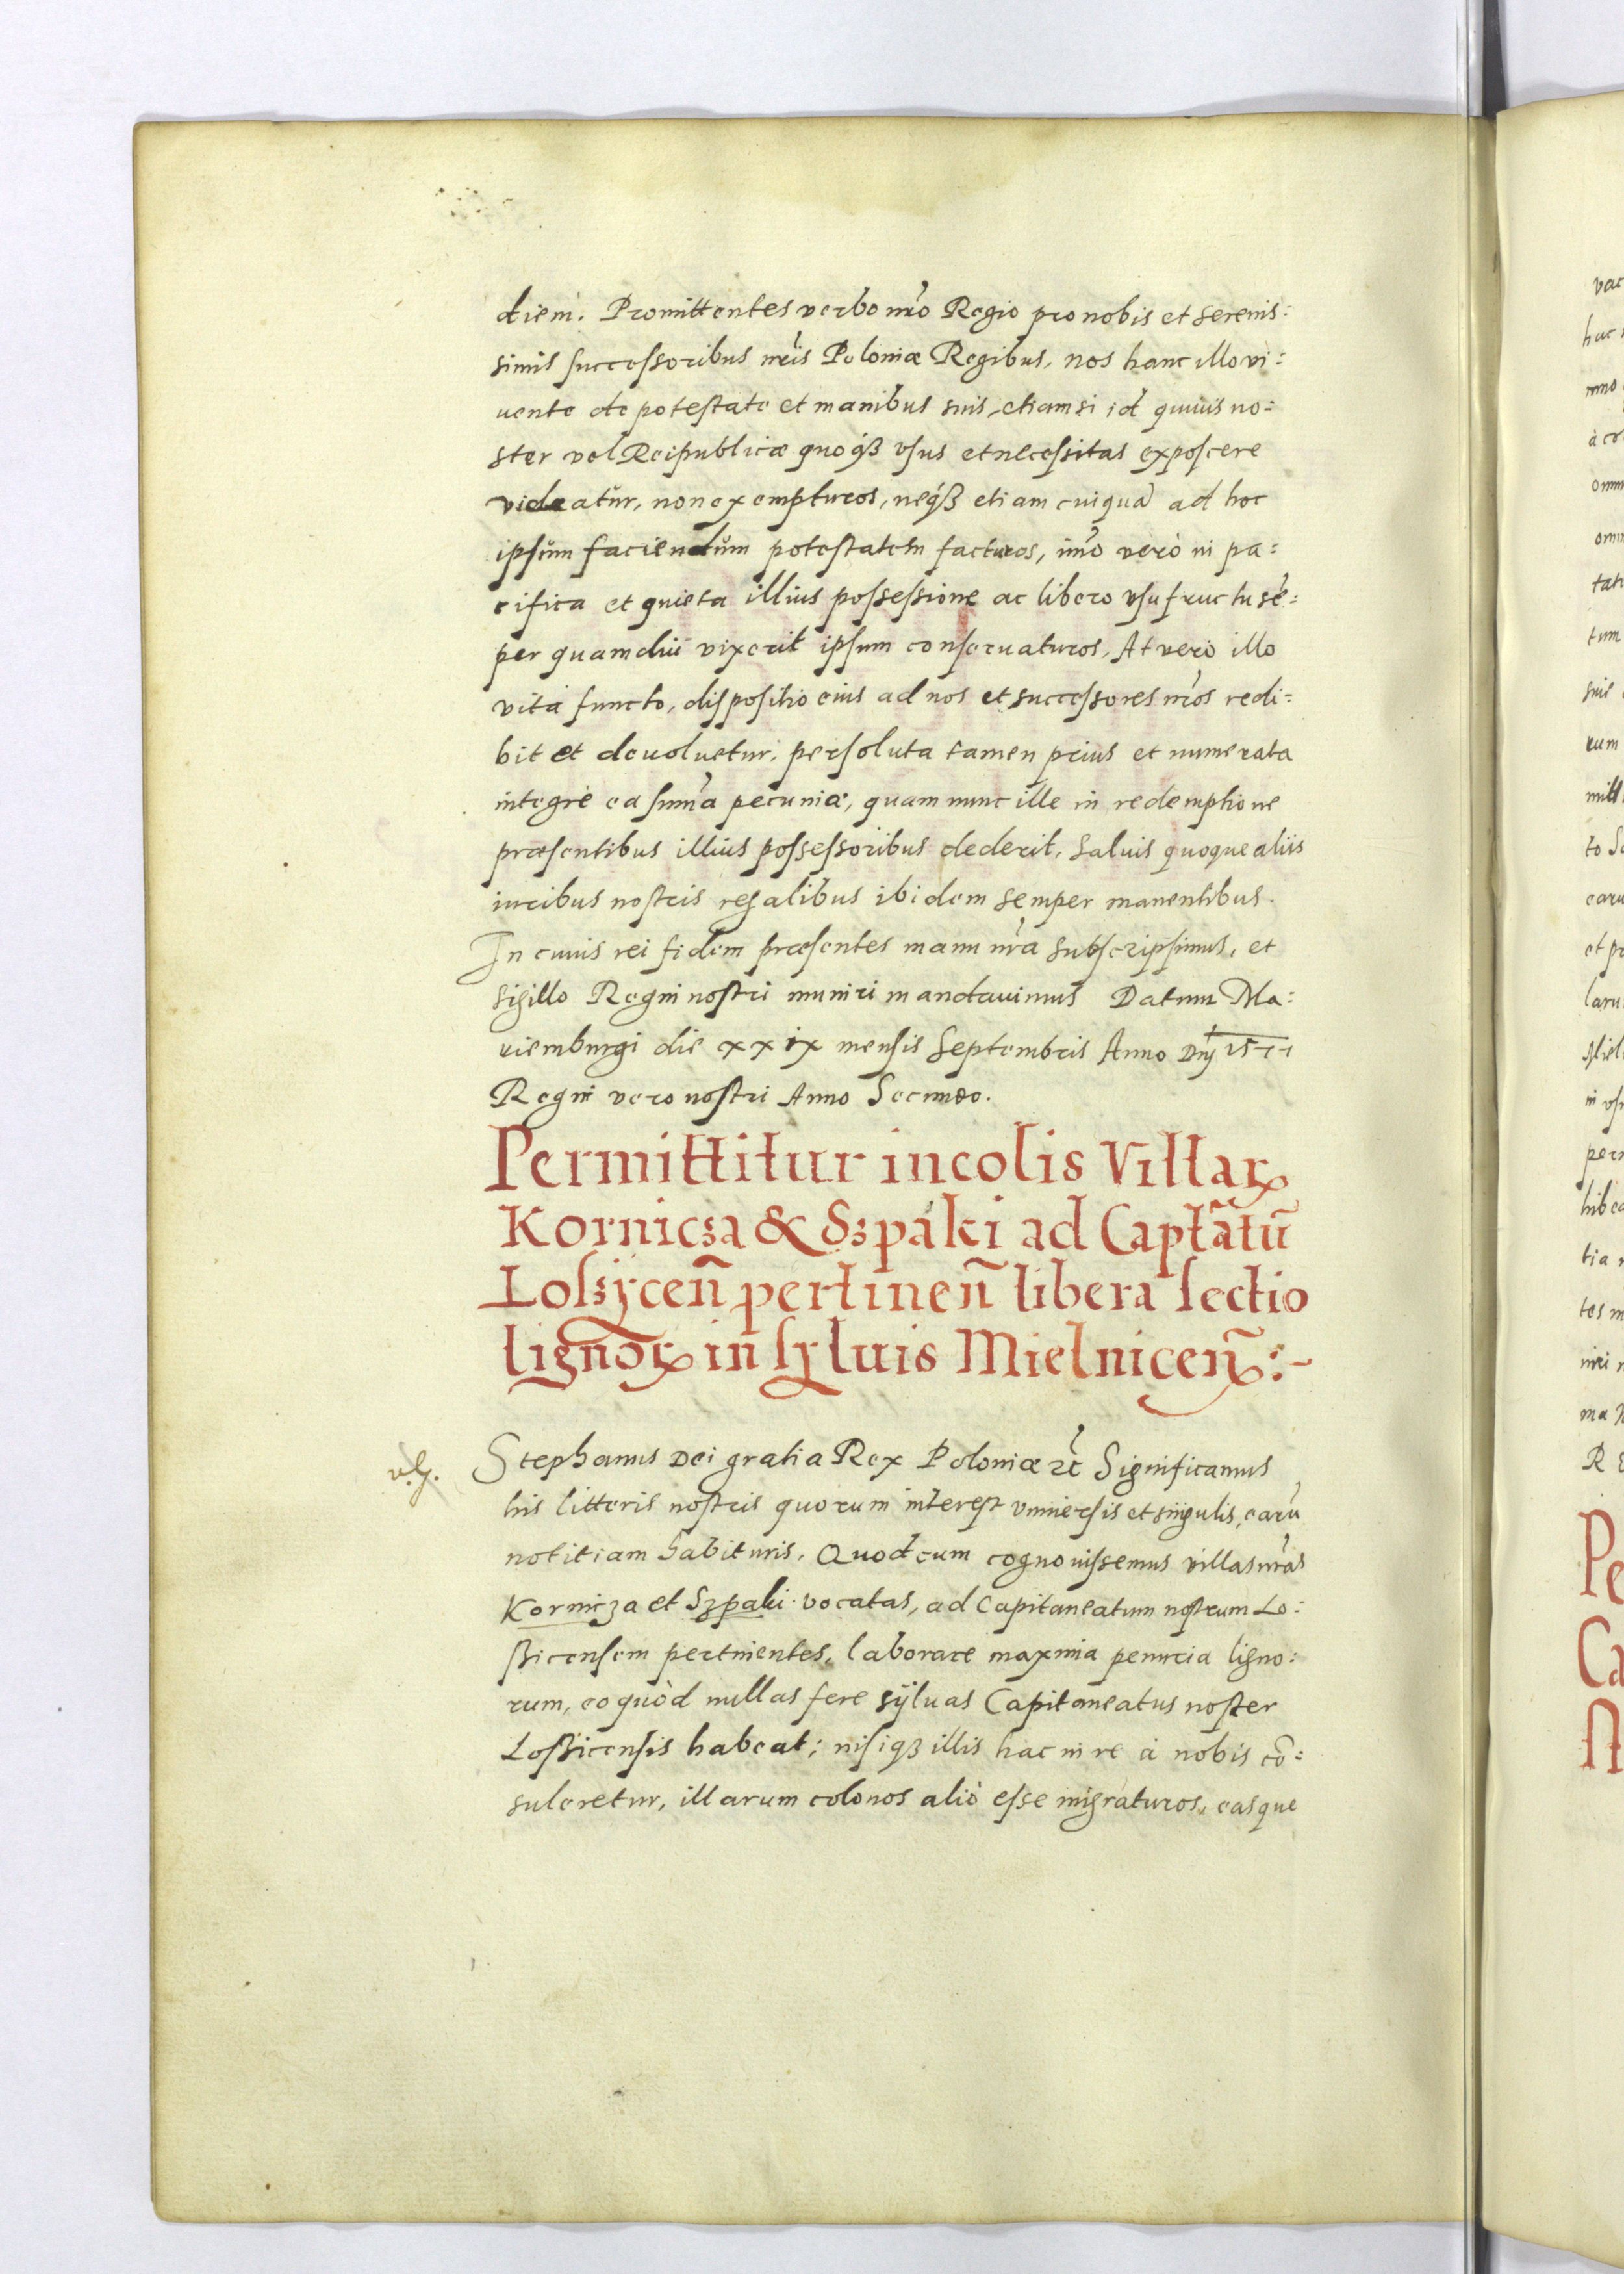 diem. Promittentes verbo nr̃o Regio pro nobis et serenis:
simis successoribus nr̃is Poloniæ Regibus, nos hanc illo vi:
uente de potestate et manibus suis, etiamsi id quiuis no:
ster vel Reipublicæ quoqȝ vsus et necessitas exposcere
videatur, non exempturos, neqȝ etiam cuiquã ad hoc
ipsŭm faciendŭm potestatem facturos, im̃o verò in pa:
cifica et quieta illius possessione ac libero vsufructu sẽ:
per quamdiu vixerit ipsum conseruaturos, At verò illo
vita functo, dispositio eius ad nos et successores nr̃os redi:
bit et deuoluetur, persoluta tamen prius et numerata
integrè ea sum̃a pecuniæ, quam nunc ille in redemptione
præsentibus illius possessoribus dederit, saluis quoque aliis
iuribus nostris regalibus ibidem semper manentibus.
In cuius rei fidem præsentes manu nr̃a subscripsimus, et
sigillo Regni nostri muniri mandauimus Datum Ma:
riemburgi die xxix mensis Septembris Anno Dnj 1577
Regni vero nostri Anno Secundo.
Permittitur incolis Villaꝝ
Kornicza & Szpaki ad Captãtũ
Losyceñ pertineñ libera sectio
lignoꝝ in syluis Mielniceñ:-
Stephanus Dei gratia Rex Poloniæ ꝛc̃ Significamus
his litteris nostris quorum interest vniuersis et singulis, earũ
notitiam habituris, Quod cum cognouissemus villas nr̃as
Kornicza et Szpaki vocatas, ad Capitaneatum nostrum Lo:
ssicensem pertinentes, laborare maxima penuria ligno:
rum, eo quòd nullas fere sÿluas Capitaneatus noster
Lossicensis habeat; nisiqȝ illis hac in re à nobis cõ:
suleretur, illarum colonos aliò esse migraturos, easque